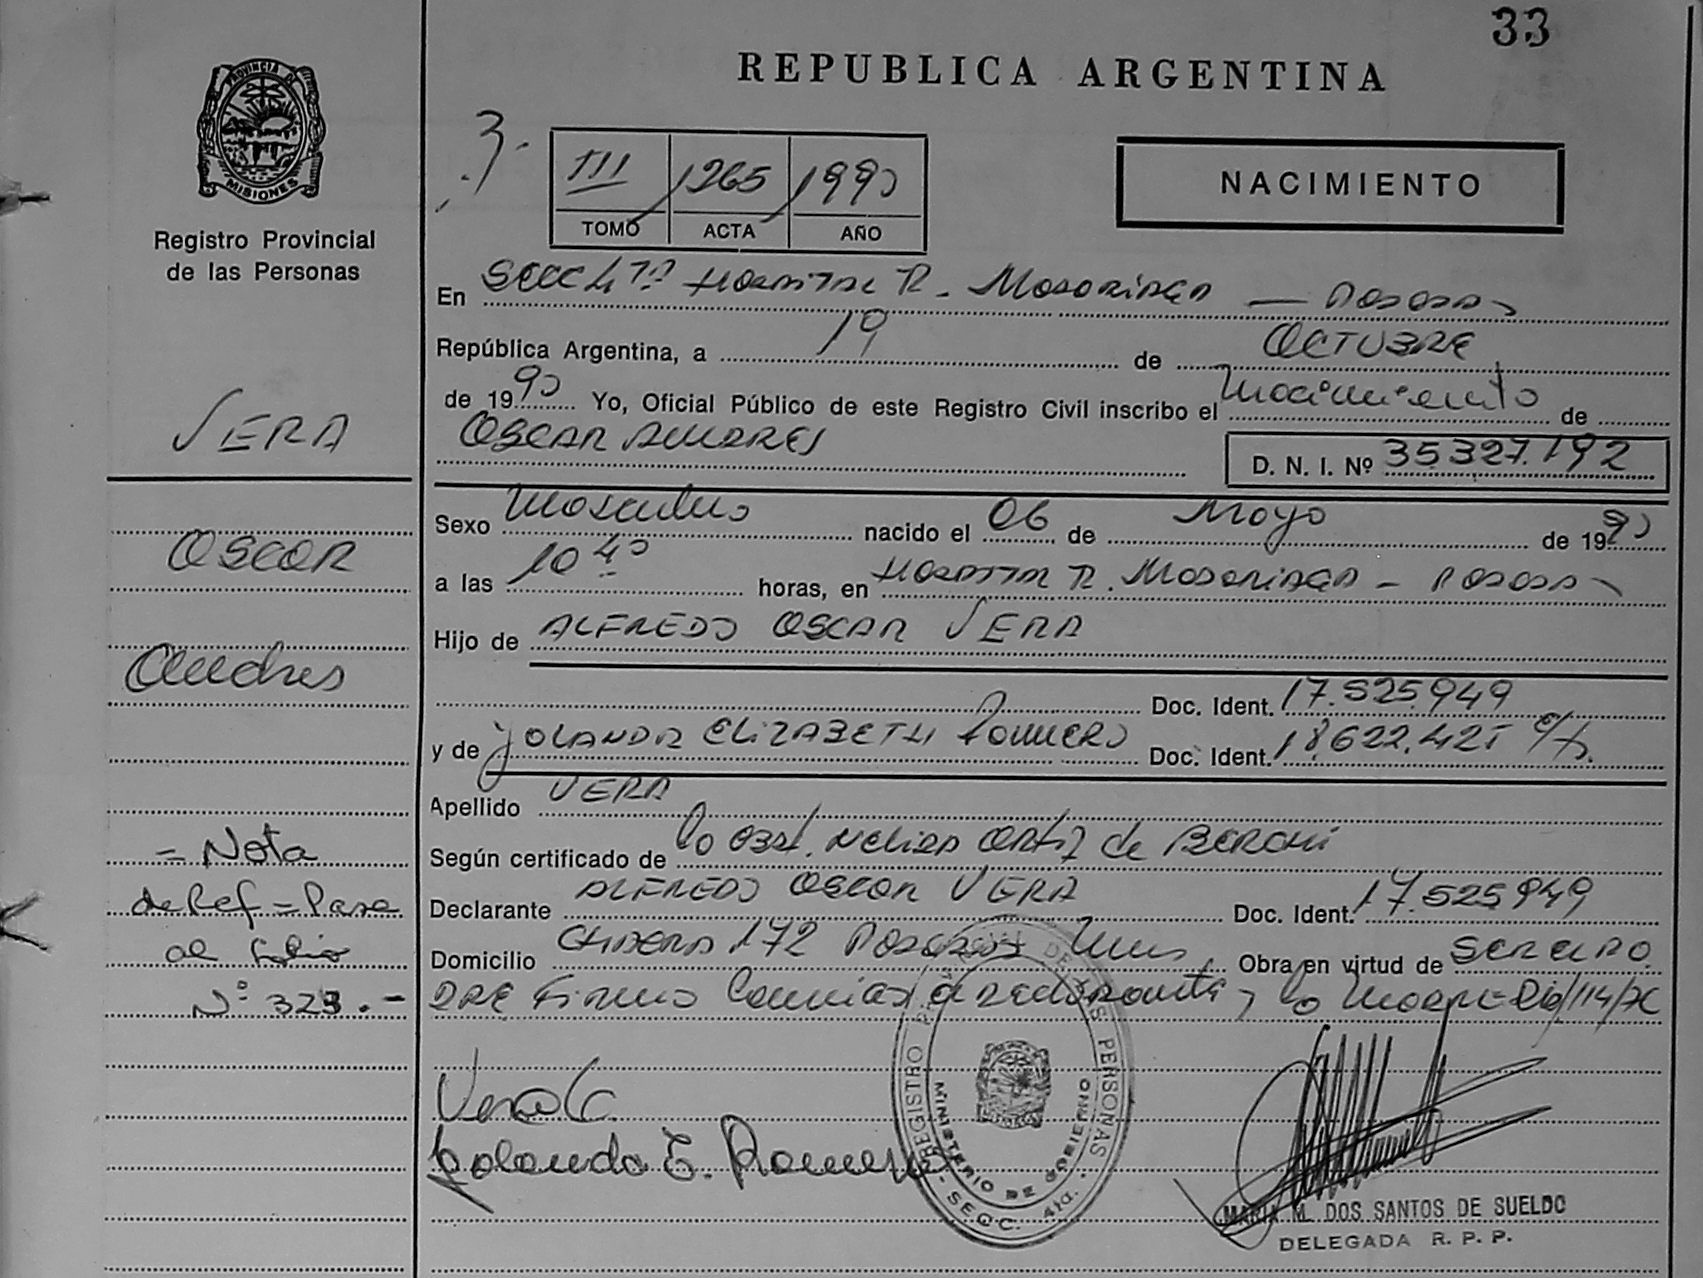 33
REPUBLICA ARGENTINA
PROVINCIA D
MISIONES
Registro Provincial
de las Personas
3.
III 1265 1990
TOMO ACTA AÑO
NACIMIENTO
En SECC 4ta HOSPITAL R. MADARIAGA — POSADAS
República Argentina, a 19 de OCTUBRE
de 1990 Yo, Oficial Público de este Registro Civil inscribo el nacimiento de
OSCAR ANDRES
D. N. I. Nº 35.327.192
VERA
OSCAR
Andres
Sexo Masculino nacido el 06 de Mayo de 1990
a las 10 40 horas, en HOSPITAL R. MADARIAGA - POSADAS
Hijo de ALFREDO OSCAR VERA
Doc. Ident. 17.525.949
y de YOLANDA ELIZABETH ROMERO Doc. Ident. 18.622.421
Apellido VERA
Según certificado de la Obst. Nelida Ortiz de
Declarante ALFREDO OSCAR VERA Doc. Ident. 17.525.949
Domicilio 172 POSADAS Mnes Obra en virtud de SER EL PA
DRE Firma la
= Nota
de Ref = Pasa
al folio
Nº 323.-
Vera
Yolanda E. Romero
REGISTRO DE LAS PERSONAS
MINISTERIO DE GOBIERNO
SECC. 4ta.
MARIA M. DOS SANTOS DE SUELDO
DELEGADA R. P. P.